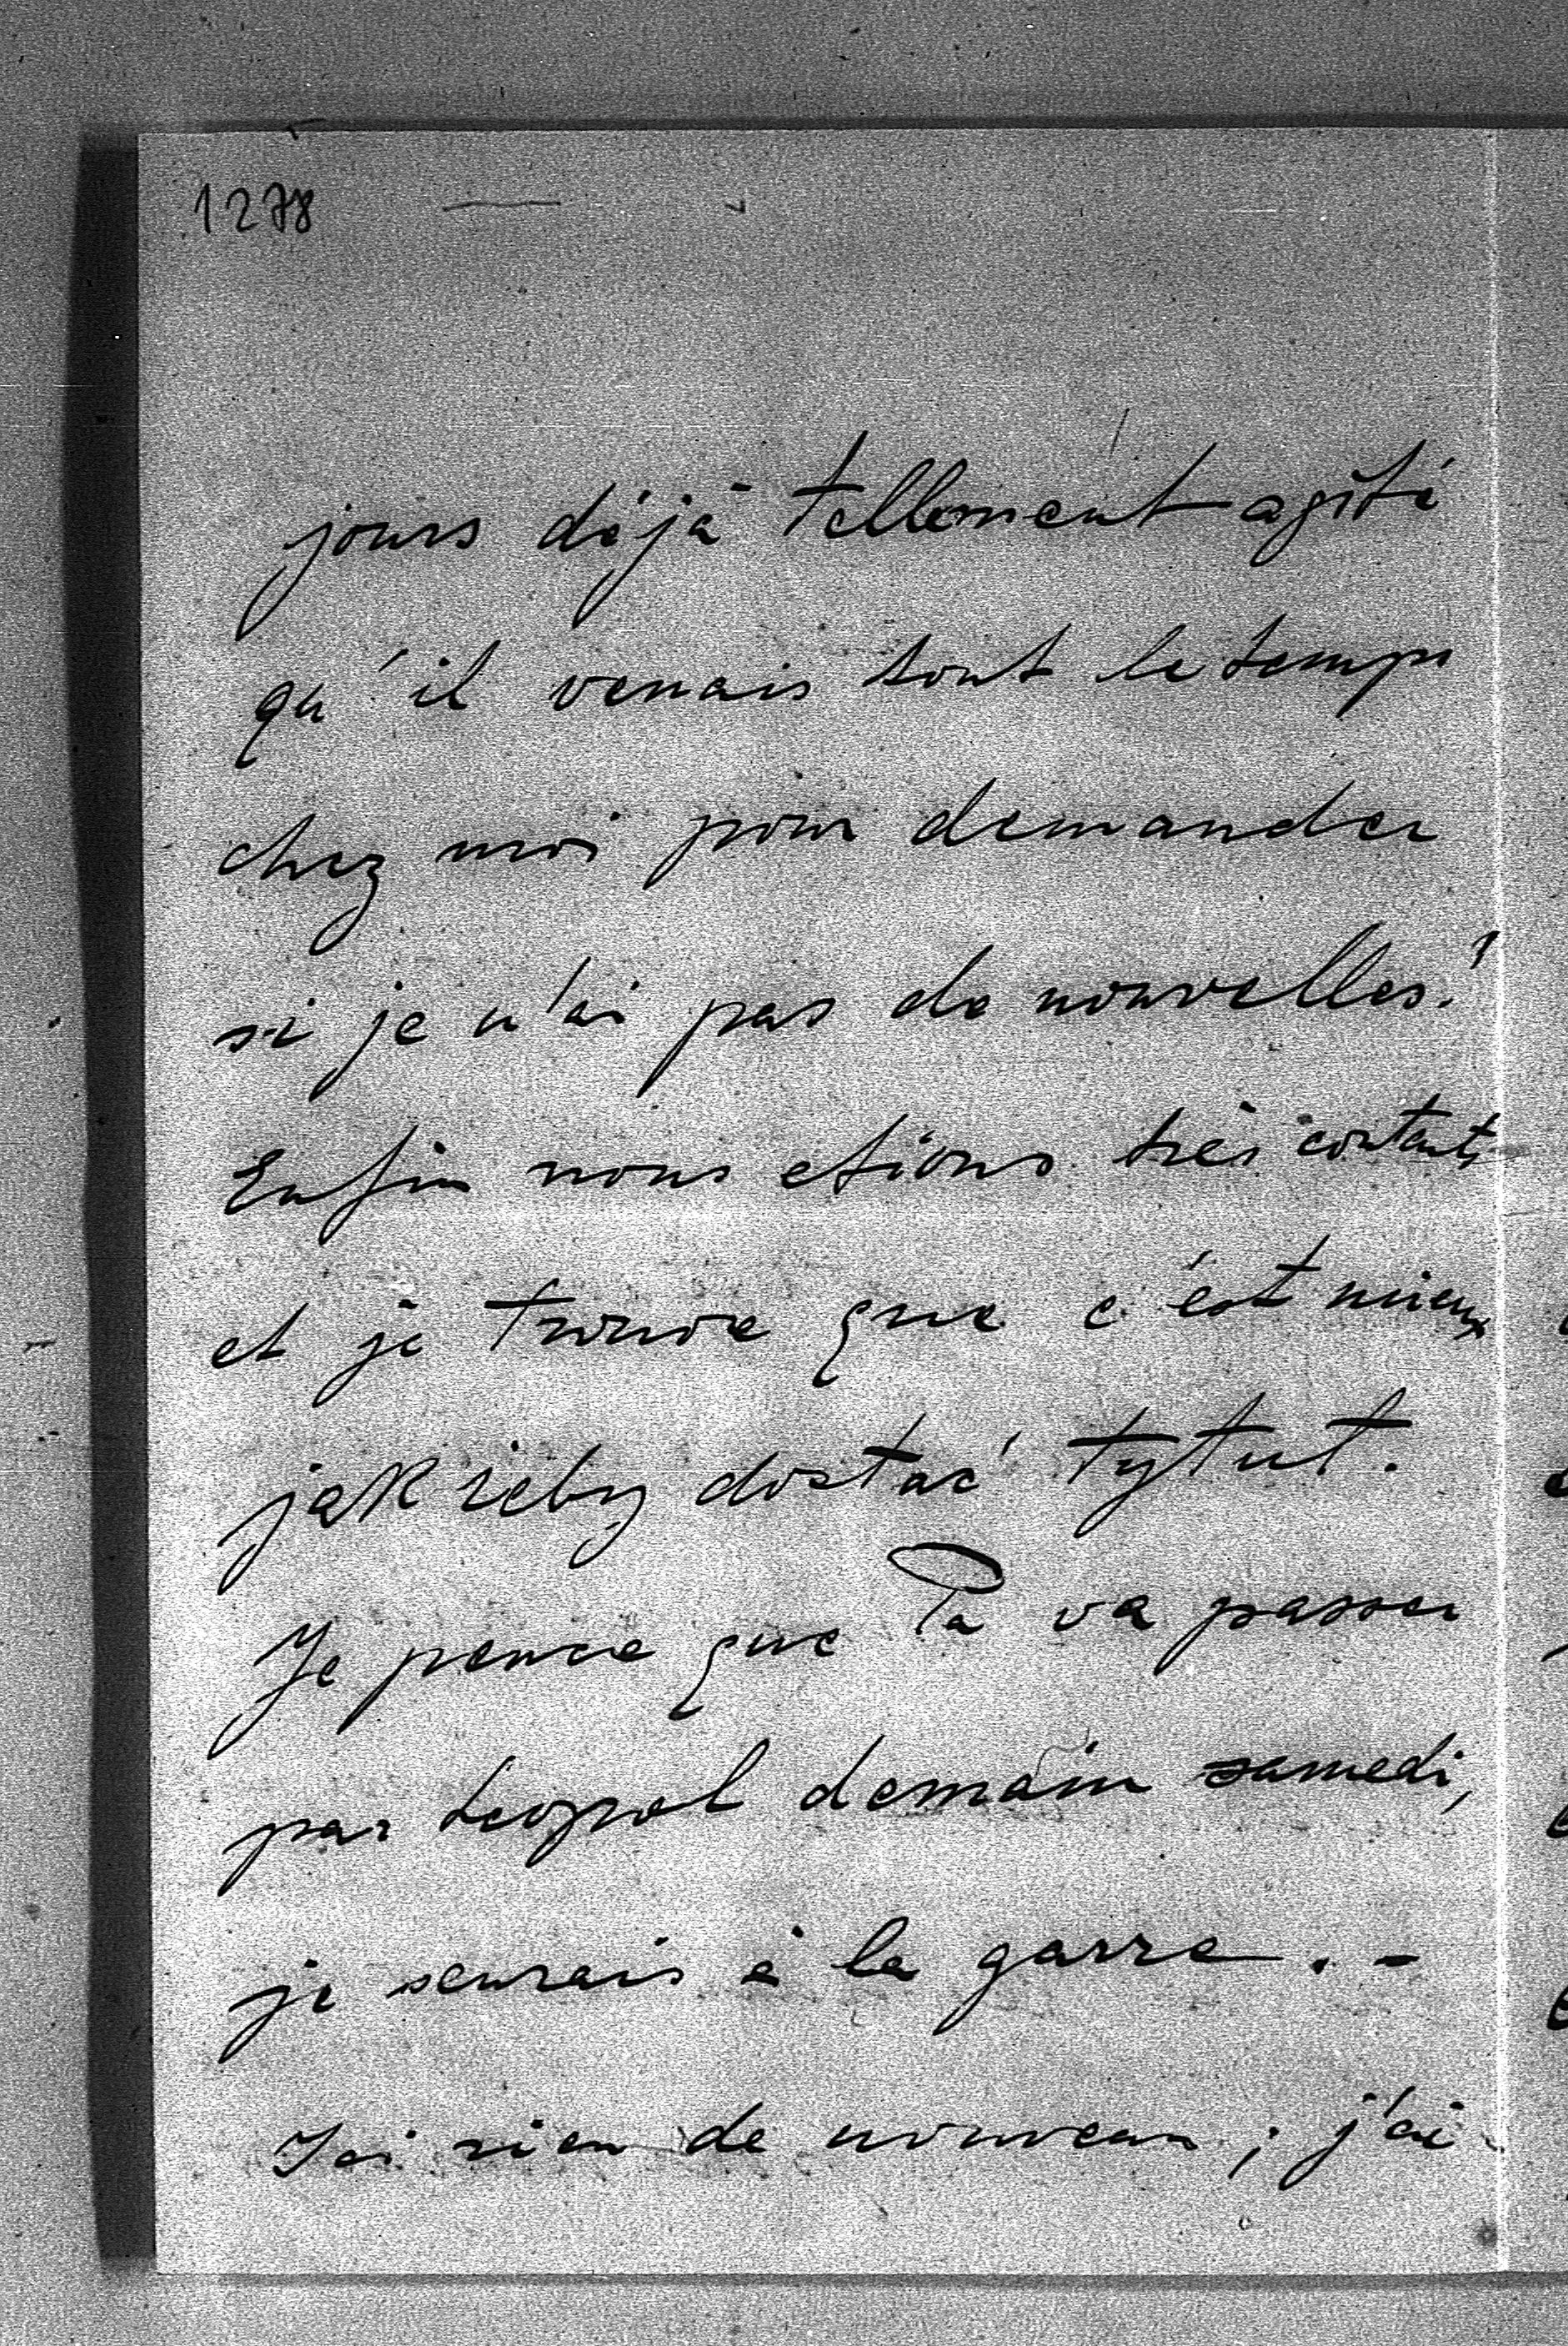 1278
jours déjà tellement agité
qu'il venais tout le temps
chez moi pour demander
si je n'ai pas de nouvelles!
Enfin nous etions très contents
et je trouve que c'est mieux
jak żeby dostać tytuł.
Je pence que Pa va passer
par Leopol demain samedi,
je seurais à la garre. -
Ici rien de nouveau ; j'ai